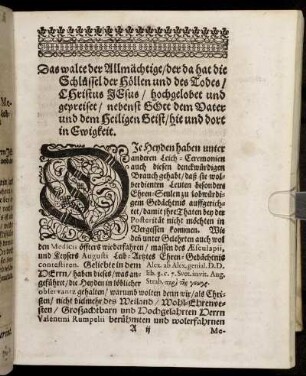 Das walte der Allmächtige/der da hat die
Schlüssel der Höllen und des Todes/
CHristus JEsus/ hochgelobet und
gepreiset/ nebenst GOtt dem Vater
und dem Heiligen Geist/hie und dort
in Ewigkeit.
DIe Heyden haben unter
anderen Leich-Ceremonien
auch diesen denckwürdigen
Brauch gehabt/daß sie wol-
verdienten Leuten besonders
Ehren-Seulen zu lobwürdi-
gem Gedächtnis auffgerich-
tet/damit ihre Thaten bey der
Posterität nicht möchten in
Vergessen kommen. Wie
den unter Gelehrten auch wol
den Medicis öffters wiederfahren/ massen des Æsculapii,
und Keysers Augusti Leib-Artztes Ehren-Gedächtnis
contestiren. Geliebte in dem
HErrn/ haben dieses/was an-
geführet/die Heyden in löblicher
observantz gehalten/ warumb wolten denn wir/als Chri-
sten/ nicht vielmehr des Weiland/ Wohl-Ehrenve-
sten/ Großachtbarn und Hochgelahrten Herrn
Valentini Rumpelii berühmten und wolerfahrnen
A ij
Me-
Alex. ab Alex. genial. D.D.
lib. 3. c. 7. Svet. in vit. Aug.
Strab.